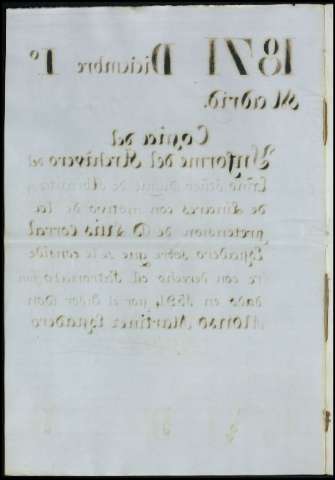 1871 Diciembre 1º
Madrid.
Copia del
Ynforme del Archivero del
Exmo Señor Duque de Abrantes y
de Linares con motivo de la
pretension de D. Luis Corral
Eguadero sobre que se le consider
re con derecho al Patronato fun
dado en 1591 por el Oidor Don
Alonso Martinez Eguadero